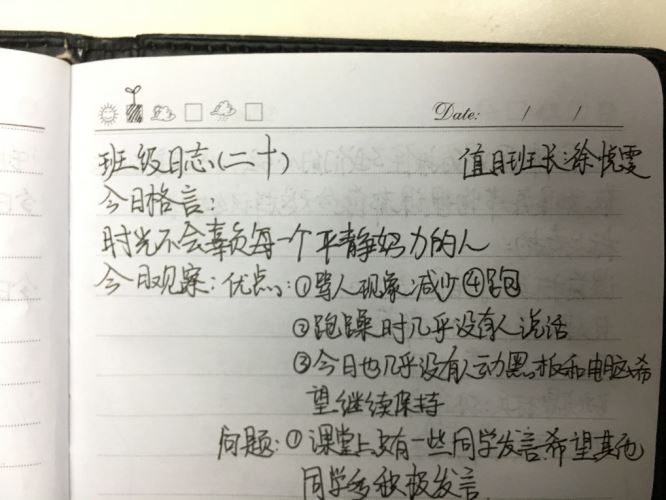 Date: / /
班级日志(二十) 值日班长:徐悦雯
今日格言:
时光不会辜负每一个平静努力的人
今日观察:优点:①骂人现象减少④跑
②跑躁时几乎没有人说话
③今日也几乎没有人动黑板和电脑希
望继续保持
问题:①课堂上有一些同学发言希望其他
同学多积极发言